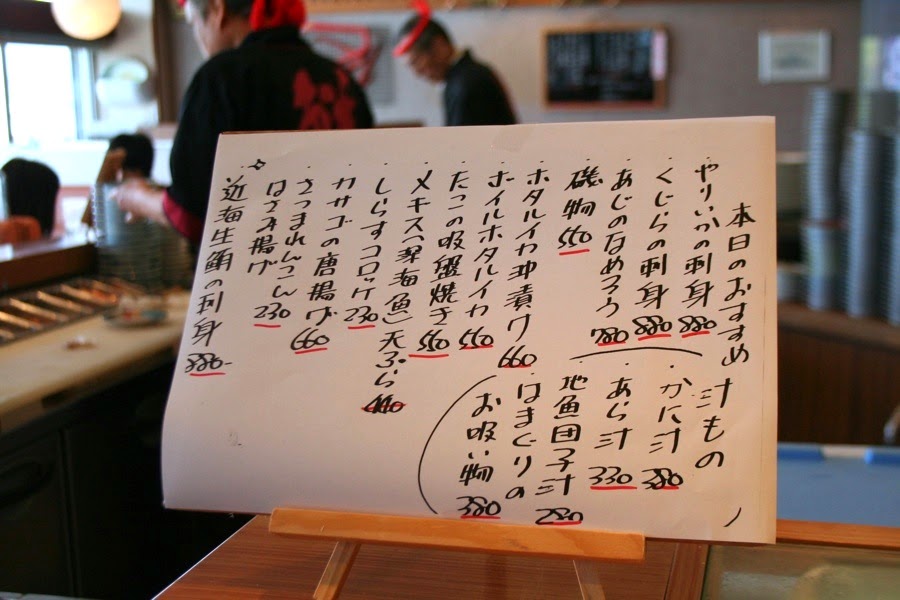 本日のおすすめ
・やりいかの刺身 880
・くじらの刺身 880
・あじのなめろう 780
・磯物 550
・ホタルイカ沖漬け 660
・ボイルホタルイカ 550
・たこの吸盤焼き 550
・メギス(深海魚)天ぷら 440
・しらすコロッケ 230
・カサゴの唐揚げ 660
・さつまれんこん
はさみ揚げ 230
・近海生鮪の刺身 880-
汁もの
・かに汁 380
・あら汁 330
・地魚団子汁 280
・はまぐりの
お吸い物 380